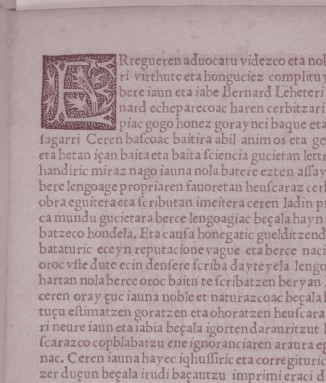 ERregueren aduocatu videzco eta nob
ri virthute eta honguciez complituy
bere iaun eta iabe Bernard Leheteri
nard echeparecoac haren cerbitzari
piac gogo honez goraynci baque eta
sagarri Ceren bascoac baitira abil animos eta ge
eta hetan içan baita eta baita sciencia gucietan lettr
handiric miraz nago iauna nola batere ezten assay
bere lengoage propriaren fauoretan heuscaraz cer
obra eguitera eta scributan imeitera ceren ladin p
ca mundu gucietara berce lengoagiac beçala hayn
batzeco hondela. Eta causa honegatic guelditzend
bataturic eceyn reputacione vague eta berce naci
oroc vste dute ecin densere scriba dayteyela lengo
hartan nola berce oroc baitute scribatzen beryan
ceren oray çuc iauna noble et naturazcoac beçala
tuçu estimatzen goratzen eta ohoratzen heuscara
ri neure iaun eta iabia beçala igorten darauritzut
scarazco copblabatzu ene ignoranciaren araura eg
nac. Ceren iauna hayec iqhussiric eta corregituric
zer duçun beçala irudi baçautzu imprimi eraci d